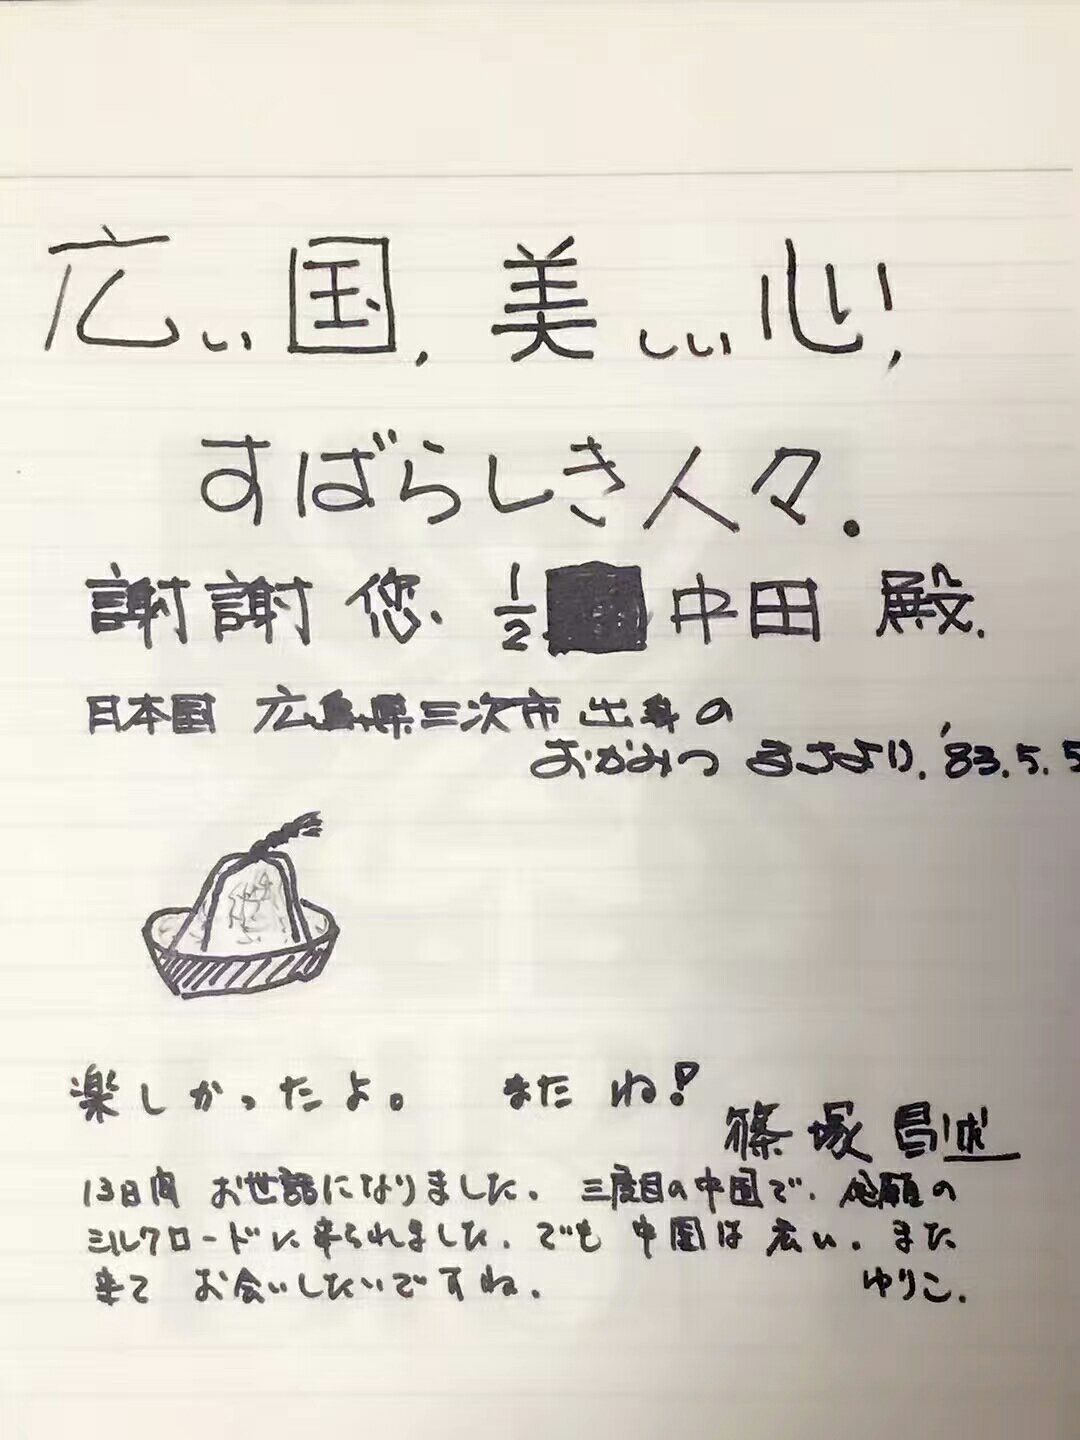 広い国, 美しい心,
すばらしき人々.
謝謝您. 1/2 中田 殿.
日本国 広島県三次市 出身の
おかみつ まさより. '83.5.5
楽しかったよ。 またね!
篠塚昌
13日間 お世話になりました. 三度目の中国で, 念願の
シルクロードに来られました. でも 中国は 広い. また
来て お会いしたいですね.
ゆりこ.